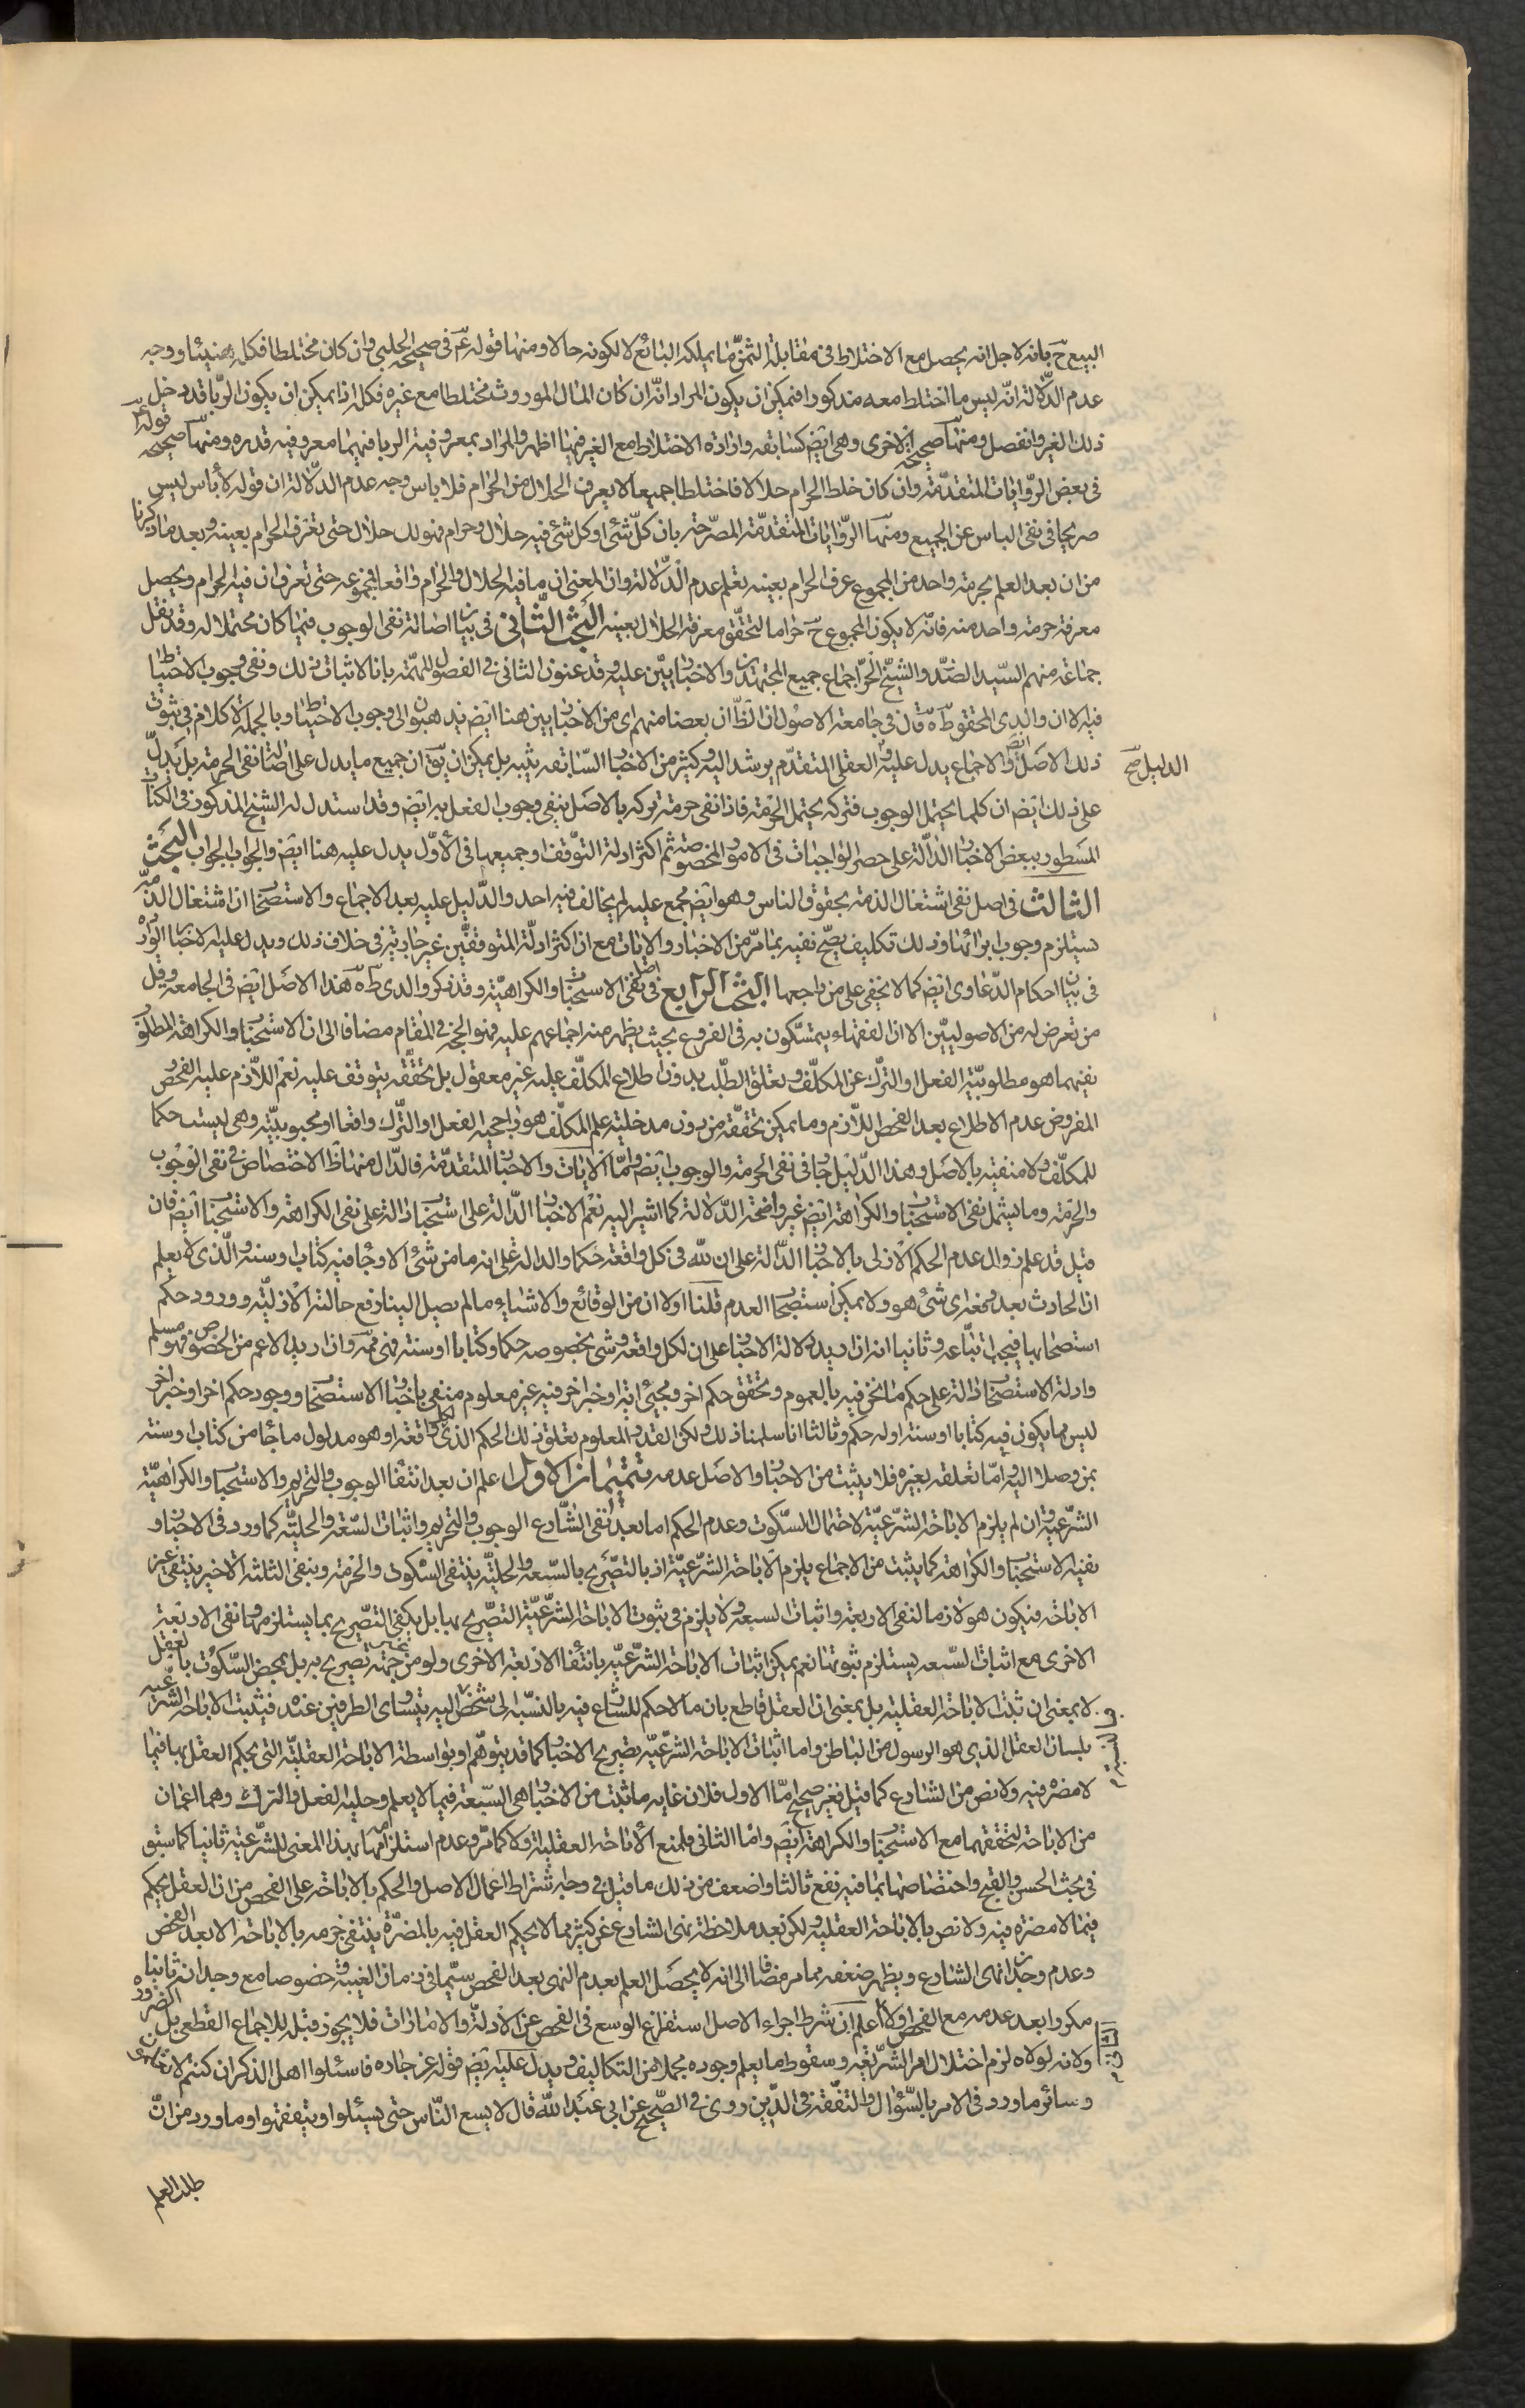 البيع ح بانه لاجل انه يحصل مع الاختلاط فى مقابلة الثمن ما يملكه البائع لا لكونه حالا ومنها قوله ع فى صحيحة الحلبى وان كان مختلطا فكله هنيئا ووجه
عدم الدلالة انه ليس ما اختلط معه مذكورا فيمكن ان يكون المراد انه ان كان المال الموروث مختلطا مع غيره فكله اذ يمكن ان يكون الربا قد دخل
ذلك الغير وانفصل ومنها صحيحته الاخرى وهى ايض كسابقه وارادة الاختلاط مع الغير فيها اظهر والمراد بمعروفية الربا فيهما معروفية قدره ومنها قوله ع صحيحه
فى بعض الروايات المتقدمة وان كان خلط الحرام حلالا فاختلطا جميعا لا يعرف الحلال من الحرام فلا باس وجه عدم الدلالة ان قوله لا باس ليس
صريحا فى نفى الباس عن الجميع ومنها الروايات المتقدمة المصرحة بان كل شئ او كل شئ فيه حلال وحرام فهو لك حلال حتى تعرف الحرام بعينه وبعد ما ذكرنا
من ان بعد العلم بحرمة واحد من المجموع عرف الحرام بعينه تعلم عدم الدلالة وان المعنى ان ما فيه الحلال والحرام واقعا فمجموعه حتى تعرف ان فيه الحرام ويحصل
معرفة حرمة واحد منه فانه لا يكون المجموع ح حراما لتحقق معرفة الحلال بعينه البحث الثانى فى بيان اصالة نفى الوجوب فيما كان محتملا له وقد نقل
جماعة منهم السيد الصدر والشيخ الحر اجماع جميع المجتهدين والاخباريين عليه وقد عنون الثانى فى الفصول المهمة بابا لاثبات ذلك ونفى وجوب الاحتياط
فيه الا ان والدى المحقق طه قال فى جامعة الاصول ان الظ ان بعضا منهم اى من الاخباريين هنا ايض يذهبون الى وجوب الاحتياط وبالجملة لا كلام فى ثبوت
ذلك الاصل ايض والاجماع يدل عليه والعقلى المتقدم يرشد اليه وكثير من الاخبار السابقه يثبته بل يمكن ان يق ان جميع ما يدل على اصالة نفى الحرمة بل يدل
الدليل صح
على ذلك ايض ان كلما يحتمل الوجوب فتركه يحتمل الحرمة فاذا نفى حرمة تركه بالاصل ينفى وجوب الفعل به ايض وقد استدل له الشيخ المذكور فى الكتاب
المسطور ببعض الاخبار الدالة على حصر الواجبات فى الامور المخصوصة ثم اكثر ادلة التوقف او جميعها فى الأول يدل عليه هنا ايض والجواب الجواب البحث
الثالث فى اصل نفى اشتغال الذمة بحقوق الناس وهو ايض مجمع عليه لم يخالف فيه احد والدليل عليه بعد الاجماع والاستصحاب ان اشتغال الذمة
يستلزم وجوب ابرائها وذلك تكليف يصح نفيه بما مر من الاخبار والايات مع ان اكثر ادلة المتوقفين غير جارية فى خلاف ذلك ويدل عليه الاخبار الواردة
فى بيان احكام الدعاوى ايض كما لا يخفى على من راجعها البحث الرابع فى اصل نفى الاستحباب والكراهية وقد ذكر والدى طه هذا الاصل ايض فى الجامعه وقل
من تعرض له من الاصوليين الا ان الفقهاء يتمسكون به فى الفروع بحيث يظهر منه اجماعهم عليه فهو الحجة فى المقام مضافا الى ان الاستحباب والكراهة المطلوب
نفيهما هو مطلوبية الفعل او الترك عن المكلف وتعلق الطلب بدون اطلاع المكلف عليه غير معقول بل تحققه يتوقف عليه نعم اللازم عليه الفحص
المفروض عدم الاطلاع بعد الفحص اللازم وما يمكن تحققه من دون مدخلية علم المكلف هو راجحية الفعل او الترك واقعا او محبوبيته وهى ليست حكما
للمكلف ولا منفية بالاصل وهذا الدليل جار فى نفى الحرمة والوجوب ايض واما الايات والاخبار المتقدمة فالدال منها ظ الاختصاص فى نفى الوجوب
والحرمة وما يشمل نفى الاستحباب والكراهة ايض غير واضحة الدلالة كما اشير اليه نعم الاخبار الدالة على استصحاب دالة على نفى الكراهة والاستحباب ايض فان
قيل قد علم زوال عدم الحكم الازلى بالاخبار الدالة على ان لله فى كل واقعة حكما والدالة على انه ما من شئ الا وجاء فيه كتاب او سنة والذى لا يعلم
ان الحادث بعد رفعه اى شئ هو ولا يمكن استصحاب العدم قلنا اولا ان من الوقائع والاشياء ما لم يصل الينا رفع حالته الازلية وورود حكم
استصحابها فيجب اتباعه وثانيا انه ان اريد دلالة الاخبار على ان لكل واقعة وشئ بخصوصه حكما وكتابا او سنة فهى ممة وان اريد الاعم من الخصوص فهو مسلم
وادلة الاستصحاب دالة على حكم ما نحن فيه بالعموم وتحقق حكم اخر ومجئ اية او خبر اخر فيه غير معلوم منفى باخبار الاستصحاب ووجود حكم اخر او خبر اخر
ليس مما يكون فيه كتابا او سنة او له حكم وثالثا انا سلمنا ذلك ولكن القدر المعلوم تعلق ذلك الحكم الذى لكل واقعة او هو مدلول ما جاء من كتاب او سنة
بمن وصلا اليه واما تعلقه بغيره فلا يثبت من الاخبار والاصل عدمه تتميمان الاول اعلم ان بعد انتفاء الوجوب والتحريم والاستحباب والكراهية
الشرعية وان لم يلزم الاباحة الشرعية لاحتمال السكوت وعدم الحكم اما بعد نفى الشارع الوجوب والتحريم واثبات السعة والحلية كما ورد فى الاخبار و
نفيه الاستحباب والكراهة كما يثبت من الاجماع يلزم الاباحة الشرعية اذ بالتصريح بالسعة والحلية ينتفى السكوت والحرمة وبنفى الثلثة الاخير ينتفى غير
الاباحة فيكون هو لازما لنفى الاربعة واثبات السعة ولا يلزم فى ثبوت الاباحة الشرعية التصريح بها بل يكفى التصريح بما يستلزمها ونفى الاربعة
الاخرى مع اثبات السعه يستلزم ثبوتها نعم يمكن اثبات الاباحة الشرعية بانتفاء الاربعة الاخرى ولو من جهة تصريح به بل بمحض السكوت بالعقل
لا بمعنى ان تثبت الاباحة العقلية بل بمعنى ان العقل قاطع بان ما لا حكم للشارع فيه بالنسبة الى شخص اليه يتساوى الطرفين عنده فيثبت الاباحة الشرعية
بلسان العقل الذى هو الرسول من الباطن واما اثبات الاباحة الشرعية بتصريح الاخبار كما قد يتوهم او بواسطة الاباحة العقلية التى يحكم العقل بها فيما
لا مضرة فيه ولا نص من الشارع كما قيل فغير صحيح اما الاول فلان غاية ما ثبت من الاخبار هى السعة فيما لا يعلم وحلية الفعل والترك وهما اعمان
من الاباحة لتحققهما مع الاستحباب والكراهة ايض واما الثانى فلمنع الاباحة العقلية اولا كما مر وعدم استلزامها بهذا المعنى للشرعية ثانيا كما سبق
فى بحث الحسن والقبح واختصاصها بما فيه نفع ثالثا واضعف من ذلك ما قيل فى وجه اشتراط اعمال الاصل والحكم بالاباحة على الفحص من ان العقل يحكم
فيما لا مضرة فيه ولا نص بالاباحة العقلية ولكن بعد ملاحظة نهى الشارع عن كثير مما لا يحكم العقل فيه بالمضرة ينتفى جزمه بالاباحة الا بعد الفحص
وعدم وجدان نهى الشارع ويظهر ضعفه مما مر مضافا الى انه لا يحصل العلم بعدم النهى بعد الفحص سيما فى زمان الغيبة خصوصا مع وجدانه
مكروا بعد عدمه مع الفحص اولا اعلم ان شرط اجراء الاصل استفراغ الوسع فى الفحص عن الادلة والامارات فلا يجوز قبله للاجماع القطعى بل الضرورة
الثانى
ولانه لولاه لزم اختلال امر الشريعة وسقوط ما يعلم وجوده مجملا من التكاليف ويدل عليه ايض قوله عز جاره فاسئلوا اهل الذكر ان كنتم لا تعلمون
وسائر ما ورد فى الامر بالسؤال والتفقه فى الدين روى فى الصحيح عن ابى عبد الله قال لا يسع الناس حتى يسئلوا ويتفقهوا وما ورد من ان
طلب العلم